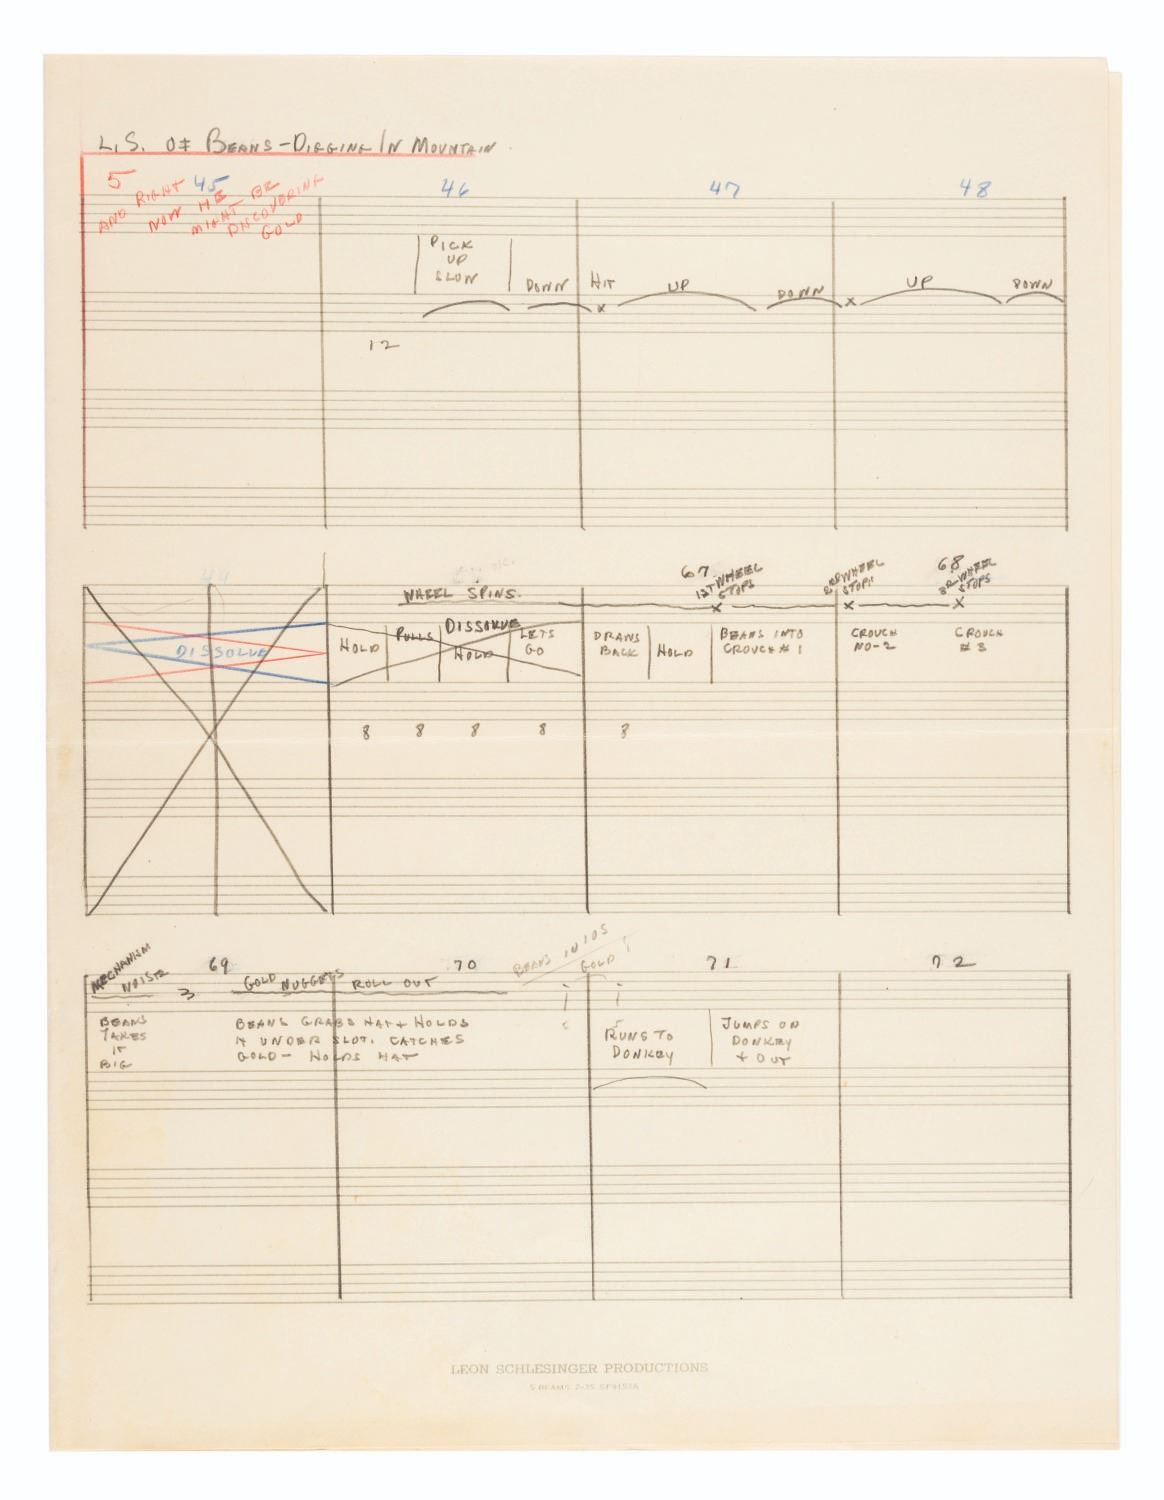 L.S. OF BEANS-DIGGING IN MOUNTAIN
5 45 46 47 48
AND RIGHT
NOW HE
MIGHT BE
DISCOVERING
GOLD
PICK
UP
SLOW
DOWN HIT UP DOWN x UP DOWN
x
12
44
67 68
WHEEL SPINS.
1ST WHEEL
STOPS
x
2ND WHEEL
STOPS
x
3RD WHEEL
STOPS
x
DISSOLVE
DISSOLVE
HOLD
PULLS
HOLD
LETS
GO
DRAWS
BACK
HOLD
BEANS INTO
CROUCH #1
CROUCH
NO-2
CROUCH
#3
8 8 8 8 8
MECHANISM
NOISE
69 70 71 72
BEANS IN IOS
GOLD!
3
GOLD NUGGETS ROLL OUT
BEANS
TAKES
IT
BIG
BEANS GRABS HAT + HOLDS
IT UNDER SLOT. CATCHES
GOLD- HOLDS HAT
RUNS TO
DONKEY
JUMPS ON
DONKEY
+ OUT
LEON SCHLESINGER PRODUCTIONS